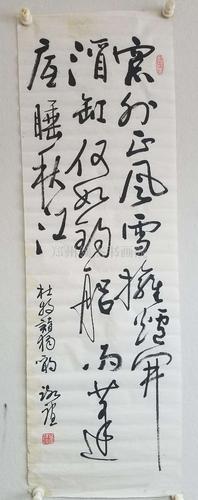 窗外正風雪擁爐開
酒缸何如釣船雨蓬
底睡秋江
杜牧詩獨酌